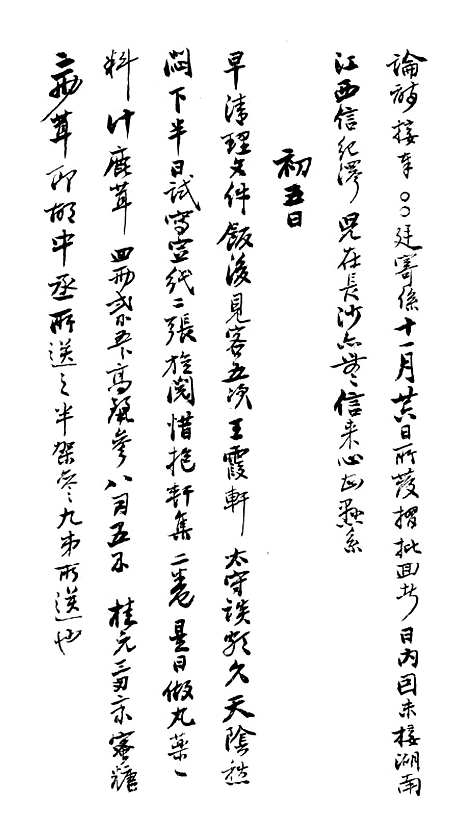 論詩接奉○○廷寄係十一月廿八日所發摺批回者日內因未接湖南
江西信紀澤兒在長沙亦無信來心正懸系
初五日
早清理文件飯後見客五次王霞軒太守談頗久天陰愁
悶下半日試寫宣紙二張旋閱惜抱軒集二卷是日做丸藥一
料計鹿茸四兩 高麗參八 五 桂元三 京蜜糖
二兩茸即胡中丞所送之半架參九弟所送也